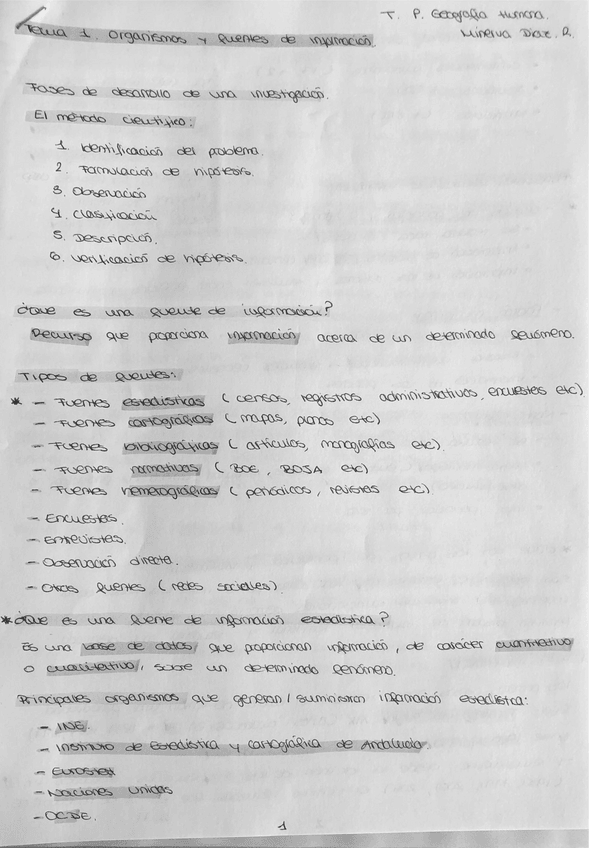 T. P. Geografía Humana.
Minerva Díaz. R.
Tema 1. Organismos y fuentes de información.
Fases de desarrollo de una investigación.
El método científico:
1. Identificación del problema.
2. Formulación de hipótesis.
3. Observación
4. Clasificación
5. Descripción.
6. Verificación de hipótesis.
¿Que es una fuente de información?
Recurso que proporciona información acerca de un determinado fenómeno.
Tipos de fuentes:
* - Fuentes estadísticas (censos, registros administrativos, encuestas etc)
- Fuentes cartográficas (mapas, planos etc)
- Fuentes bibliográficas (artículos, monografías etc).
- Fuentes normativas (BOE, BOJA etc)
- Fuentes hemerográficas (periódicos, revistas etc).
- Encuestas.
- Entrevistas.
- Observación directa.
- Otras fuentes (redes sociales).
* ¿Que es una fuente de información estadística?
Es una base de datos, que proporcionan información, de carácer cuantitativo
o cualitativo, sobre un determinado fenómeno.
Principales organismos, que generan/suministran información estadística:
- INE.
- Instituto de Estadística y Cartográfica de Andalucía.
- Eurostat
- Naciones Unidas
- OCDE.
1